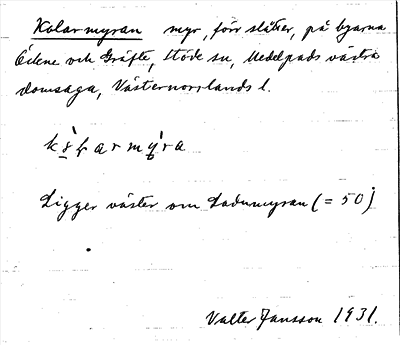 Kolarmyran myr, förr slåtter, på byarna
Edene och Gräfte, Stöde sn, Medelpads västra
domsaga, Västernorrlands l.
Ligger väster om Ladumyran (= 50)
Valter Jansson 1931.